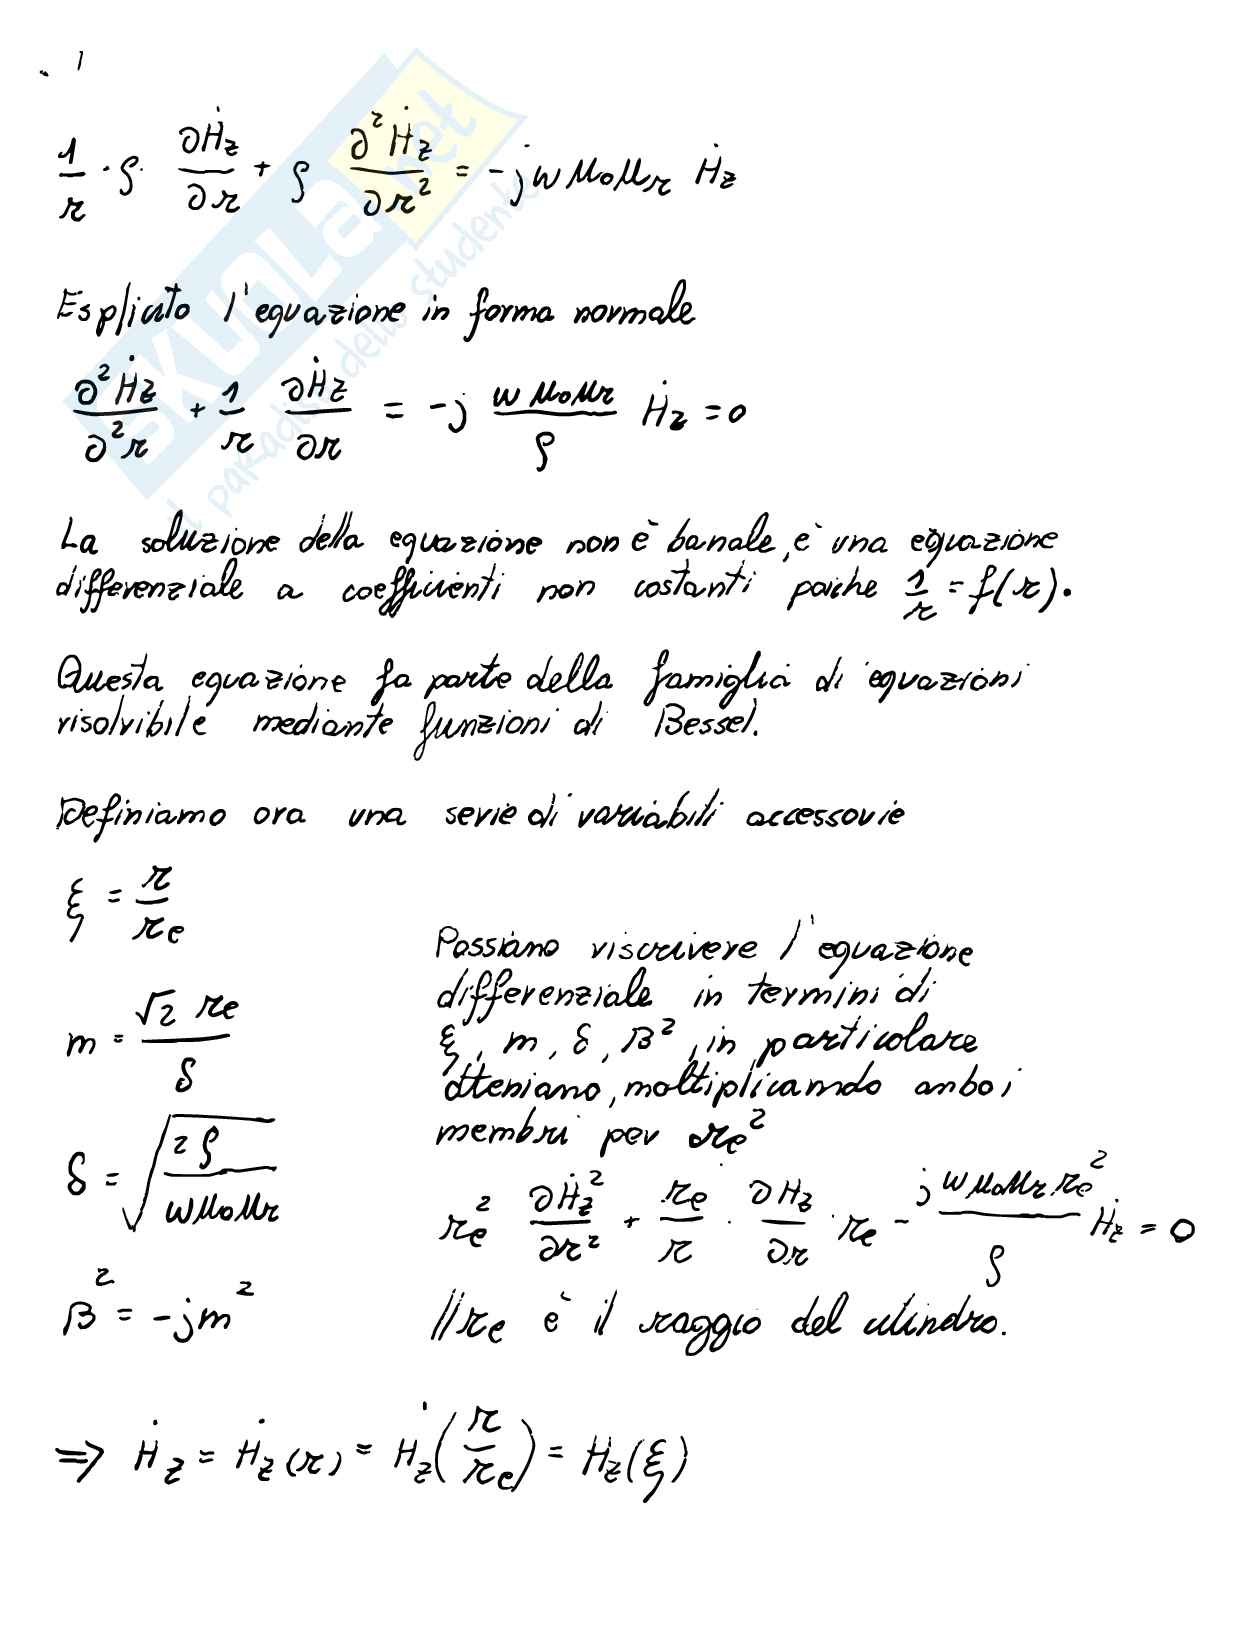 1
1/r · ρ · ∂Ḣz/∂r + ρ ∂²Ḣz/∂r² = -jωμ₀μr Ḣz
Esplicito l'equazione in forma normale
∂²Ḣz/∂²r + 1/r ∂Ḣz/∂r = -j ωμ₀μr/ρ Ḣz = 0
La soluzione della equazione non è banale, è una equazione
differenziale a coefficienti non costanti poiche 1/r = f(r).
Questa equazione fa parte della famiglia di equazioni
risolvibile mediante funzioni di Bessel.
Definiamo ora una serie di variabili accessorie
ξ = r/re
m = √2 re/δ
δ = √(2ρ/ωμ₀μr)
β² = -jm²
Possiamo riscrivere l'equazione
differenziale in termini di
ξ, m, δ, β², in particolare
otteniamo, moltiplicando ambo i
membri per re²
re² ∂Ḣz²/∂r² + re/r · ∂Hz/∂r · re - j ωμ₀μr re²/ρ Ḣz = 0
// re è il raggio del cilindro.
⇒ Ḣz = Ḣz(r) = Ḣz(r/re) = Ḣz(ξ)
SKUOLA.net
il paradiso dello studente